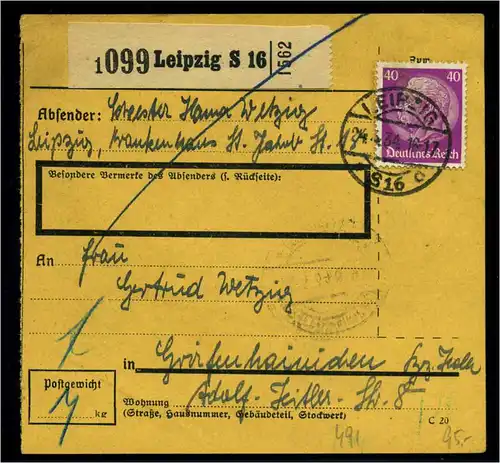 1099 Leipzig S 16
1562
40 40
Deutsches Reich
LEIPZIG
S16
Absender: Hanna Wetzig
Leipzig, Krankenhaus St. Jakob
Besondere Vermerke des Absenders (s. Rückseite):
An Frau
Gertrud Wetzig
in Gräfenhainichen
Postgewicht
kg
Wohnung Adolf-Hitler-Str. 8
(Straße, Hausnummer, Gebäudeteil, Stockwert)
C 20
491
95.-